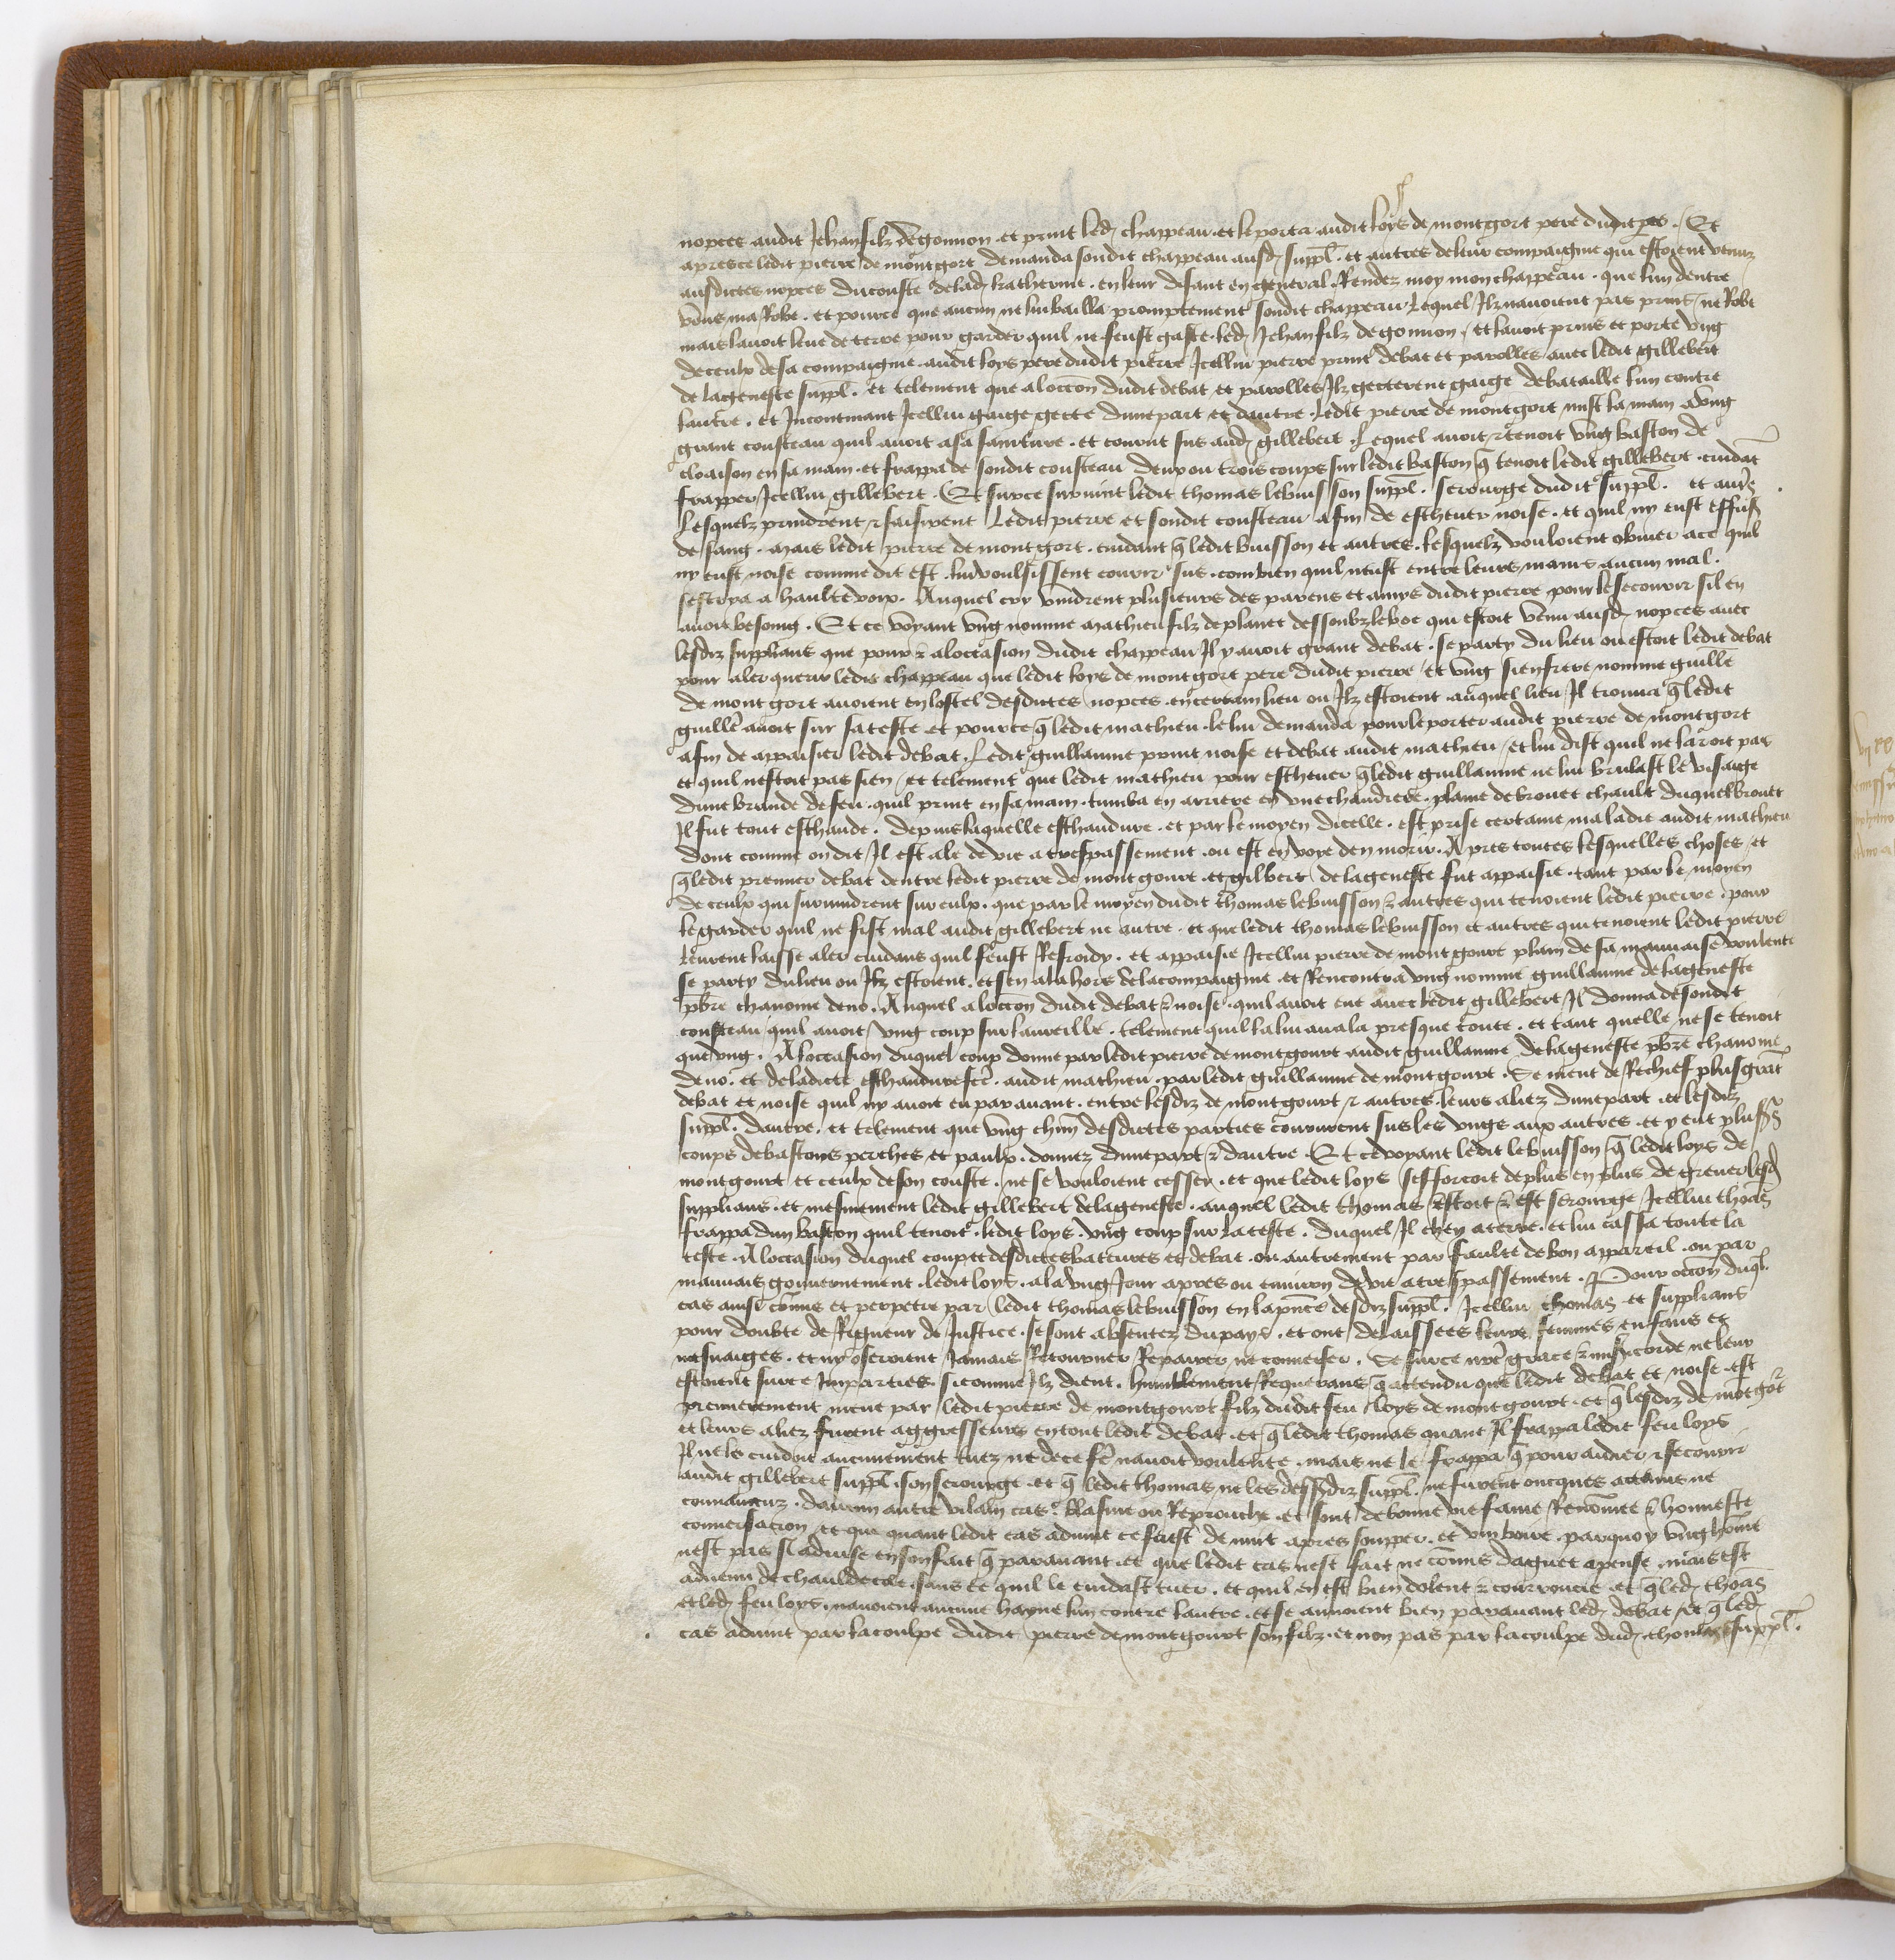 nopces audit Jehan filz de gonnon et print led chappeau et le porta audit loys de montgort pere dudit pre. Et
apres ce ledit pierre de montgort demanda sondit chappeau ausd suppl. et autres de leur compaignie qui estoient venuz
ausdictes nopces du couste de lad katherine. en leur disant en general. Rendez moy mon chappeau. que lun dentre
vous ma Robe. et pource que aucun ne lui bailla promptement sondit chappeau Lequel Ilz navoient pas prins ne Robe
mais lavoit leve de terre pour garder quil ne feust gaste. led Jehan filz de gonnon. et lavoit prins et porte ung
de ceulx de sa compaignie audit loys pere dudit pierre Icellui pierre print debat et parolles avec ledit gillebert
de lageneste suppl. et telement que a loccon dudit debat et parolles Ilz gecterent gaige de bataille lun contre
lautre. et Incontinant Icellui gaige gecte dune part et dautre. Ledit pierre de montgort mist la main a ung
grant cousteau quil avoit a sa sainture. et courut sus aud gillebert. Lequel avoit et tenoit ung baston de
cloaison en sa main. et frappa de sondit cousteau deux ou trois coups sur ledit baston q tenoit ledit gillebert. cuidat
frapper Icellui gillebert. Et sur ce survint ledit thomas lebuisson suppl. serourge dudit suppl. et aures
Lesquelz prindrent et saisirent Ledit pierre et sondit cousteau afin de eschever noise. et quil ny eust effus
de sang. mais ledit pierre de montgort. cuidant q ledit buisson et autres. lesquelz vouloient obvier a ce quil
ny eust noise comme dit est. lui voulsissent courir sus. combien quil neust entre leurs mains aucun mal.
sescrya a haulte voix. Auquel cry vindrent plusieurs des parens et amys dudit pierre pour le secourir sil en
avoit besoing. Et ce voyant ung nomme mathieu filz de planet dessoubz leboe qui estoit venu ausd nopces avec
lesdiz supplians que pour et a loccasion dudit chappeau Il y avoit grant debat. se party du lieu ou estoit ledit debat
pour aler querir ledit chappeau que ledit loys de montgort pere dudit pierre et ung sien frere nomme guille
de montgort avoient en lostel desdictes nopces en certain lieu ou Ilz estoient auquel lieu Il trouva q ledit
guille avoit sur sa teste et pource q ledit mathieu le lui demanda pour le porter audit pierre de montgort
afin de appaisier ledit debat. Ledit guillaume print noise et debat audit mathieu et lui dist quil ne laroit pas
et quil nestoit pas sien et telement que ledit mathieu pour eschever q ledit guillaume ne lui brulast le visaige
dune brande de feu quil print en sa main. tumba en arriere en une chaudiere. plaine de brouet chault duquel brouet
Il fut tout eschaude. depuis laquelle eschaudure. et par le moyen dicelle. est prise certaine maladie audit mathieu
dont comme on dit Il est ale de vie a trespassement ou est en voye den morir. Apres toutes lesquelles choses et
q ledit premier debat dentre ledit pierre de montgourt et gilbert de lageneste fut appaisie. tant par le moyen
de ceulx qui survindrent sur eulx. que par le moyen dudit thomas lebuisson et autres qui tenoient ledit pierre. pour
le garder quil ne fist mal audit gillebert ne autre. et que ledit thomas lebuisson et autres qui tenoient ledit pierre
leurent laisse aler cuidans quil feust Refroidy. et appaisie Icellui pierre de montgourt plain de sa mauvaise voulente
se party du lieu ou Ilz estoient. et sen ala hors de la compaignie et Rencontra ung nomme guillaume de lageneste
pbre chanoine deno. Auquel a loccon dudit debat et noise quil avoit eue avec ledit gillebert Il donna de sondit
cousteau quil avoit ung coup sur laureille. telement quil la lui avala presque toute. et tant quelle ne se tenoit
que ung. A loccasion duquel coup donne par ledit pierre de montgourt audit guillaume de lageneste pbre chanoine
deno. et de ladicte eschaudure fcte audit mathieu. par ledit guillaume de montgourt. Se ment de Rechief plus grat
debat et noise quil ny avoit eu paravant. entre lesdiz de montgourt et autres. leurs aliez dune part et lesdiz
suppl. dautre. et telement que ung chun desdictes parties coururent sus les ungs aux autres. et y eut plus
coups de bastons perches et paulx. donnez dune part et dautre. Et ce voyant ledit lebuisson q ledit loys de
montgourt et ceulx de son couste. ne se vouloient cesser. et que ledit loys sefforcoit de plus en plus de grever lesd
supplians. et mesmement ledit gillebert de lageneste. auquel ledit thomas estoit et est serourge Icellui thoas
frappa dun baston quil tenoit. ledit loys. ung coup sur la teste. duquel Il chey a terre. et lui cassa toute la
teste. A loccasion duquel coup et desdictes bateures et debat. ou autrement par faulte de bon appareil. ou par
mauvais gouvernement. ledit loys. ala ung Jour apres ou environ de vie a trespassement. Pour occon duql
cas ainsi comis et perpetre par ledit thomas lebuisson en la pnce desdiz suppl. Icellui thomas et supplians
pour doubte de Rigueur de Justice. se sont absentez du pays. et ont delaissees leurs femmes enfans et
mesnaiges. et ny oseroient Jamais Retourner Repairer ne converser. Se sur ce nre grace et misicorde ne leur
estoient sur ce Imparties. si comme Ilz dient. humblement Requerans q attendu que ledit debat et noise est
premierement meue par ledit pierre de montgourt filz dudit feu loys de montgourt. et q lesdiz de motgort
et leurs aliez furent aggresseurs en tout ledit debat. et q ledit thomas quant Il frappa ledit feu loys
Il ne le cuidoit aucunement tuer ne de ce fe navoit voulente. mais ne le frappa q pour aidier et secourir
audit gillebert suppl son serourge et q ledit thomas ne les dessusdiz suppl. ne furent oncques actains ne
convaincuz. daucun autre vilain cas. blasme ou Reprouche. et sont de bonne vie fame Renomee et honneste
conversacion et que quant ledit cas advint ce feust de nuit apres soupper. et vin boire. parquoy ung home
nest pas si advise en son fait q paravant. et que ledit cas nest fait ne comis daguet apense. mais est
advenu de chaulde cole. sans ce quil le cuidast tuer. et quil en est bien dolent et courroucie. et q led thoas
et led feu loys. navoient aucune hayne lun contre lautre. et se amoient bien paravant led debat. et q led
cas advint par la coulpe dudit pierre de montgourt son filz. et non pas par la coulpe dud thomas suppl.